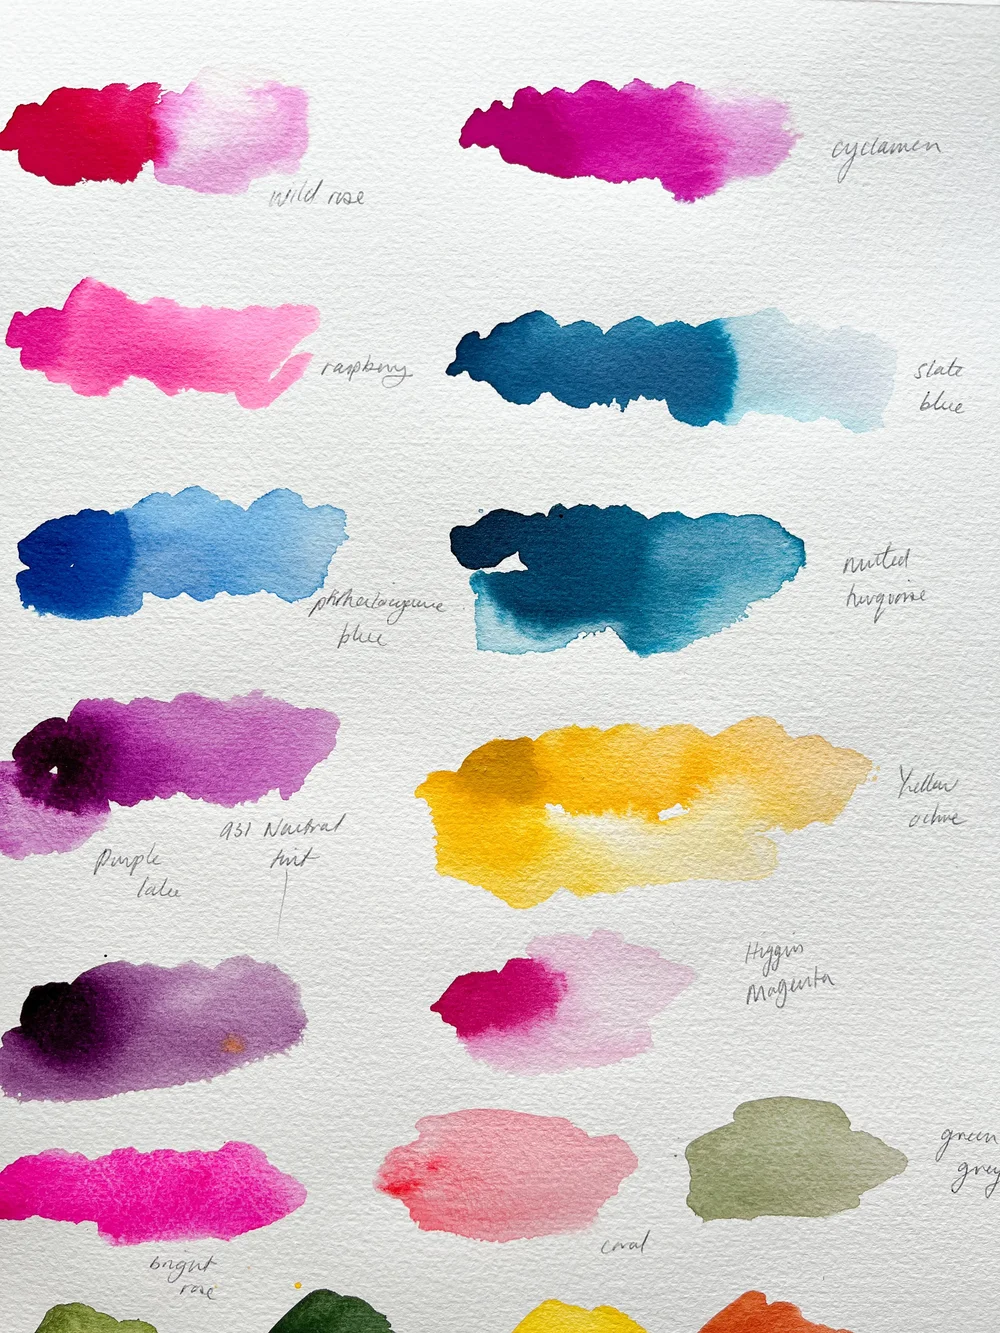 wild rose
cyclamen
raspberry
slate
blue
blue
muted
turquoise
Purple
lake
931 Neutral
tint
Yellow
ochre
Higgins
Magenta
bright
rose
coral
green
grey